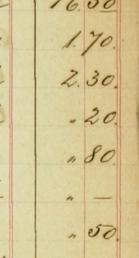 16.50
1.70.
2.30.
" 20.
" 80.
" —
" 50.